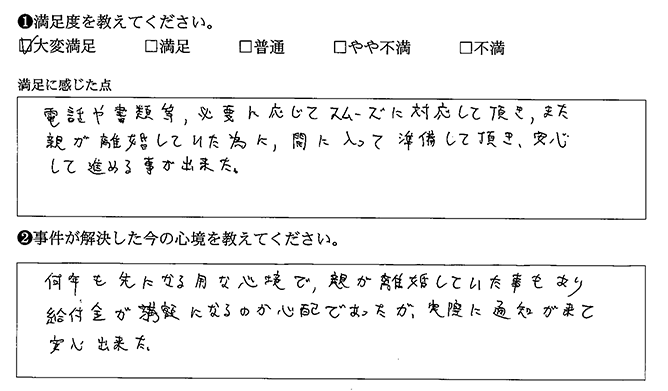 ❶満足度を教えてください。
☑大変満足 □満足 □普通 □やや不満 □不満
満足に感じた点
電話や書類等,必要に応じてスムーズに対応して頂き,また
親が離婚していた為に,間に入って準備して頂き、安心
して進める事が出来た。
❷事件が解決した今の心境を教えてください。
何年も先になる様な心境で,親が離婚していた事もあり
給付金が満額になるのか心配であったが,実際に通知が来て
安心出来た。